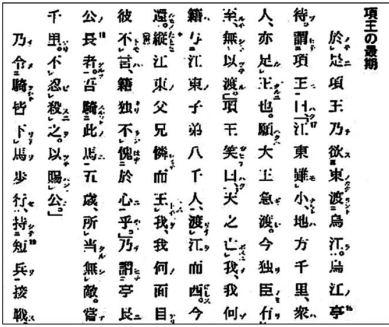 項王の最期
於是項王乃欲東渡烏江。烏江亭
待。謂項王曰「江東雖小、地方千里、衆
人、亦足王也。願大王急渡。今独臣有
至、無以渡。」項王笑曰「天之亡我、我何
籍与江東子弟八千人、渡江而西。今
還。縦江東父兄憐而王我、我何面目
彼不言、籍独不愧於心乎。」乃謂亭長
公長者。吾騎此馬五歳、所当無敵。嘗
千里。不忍殺之。以賜公。」
乃令騎皆下馬歩行、持短兵接戦